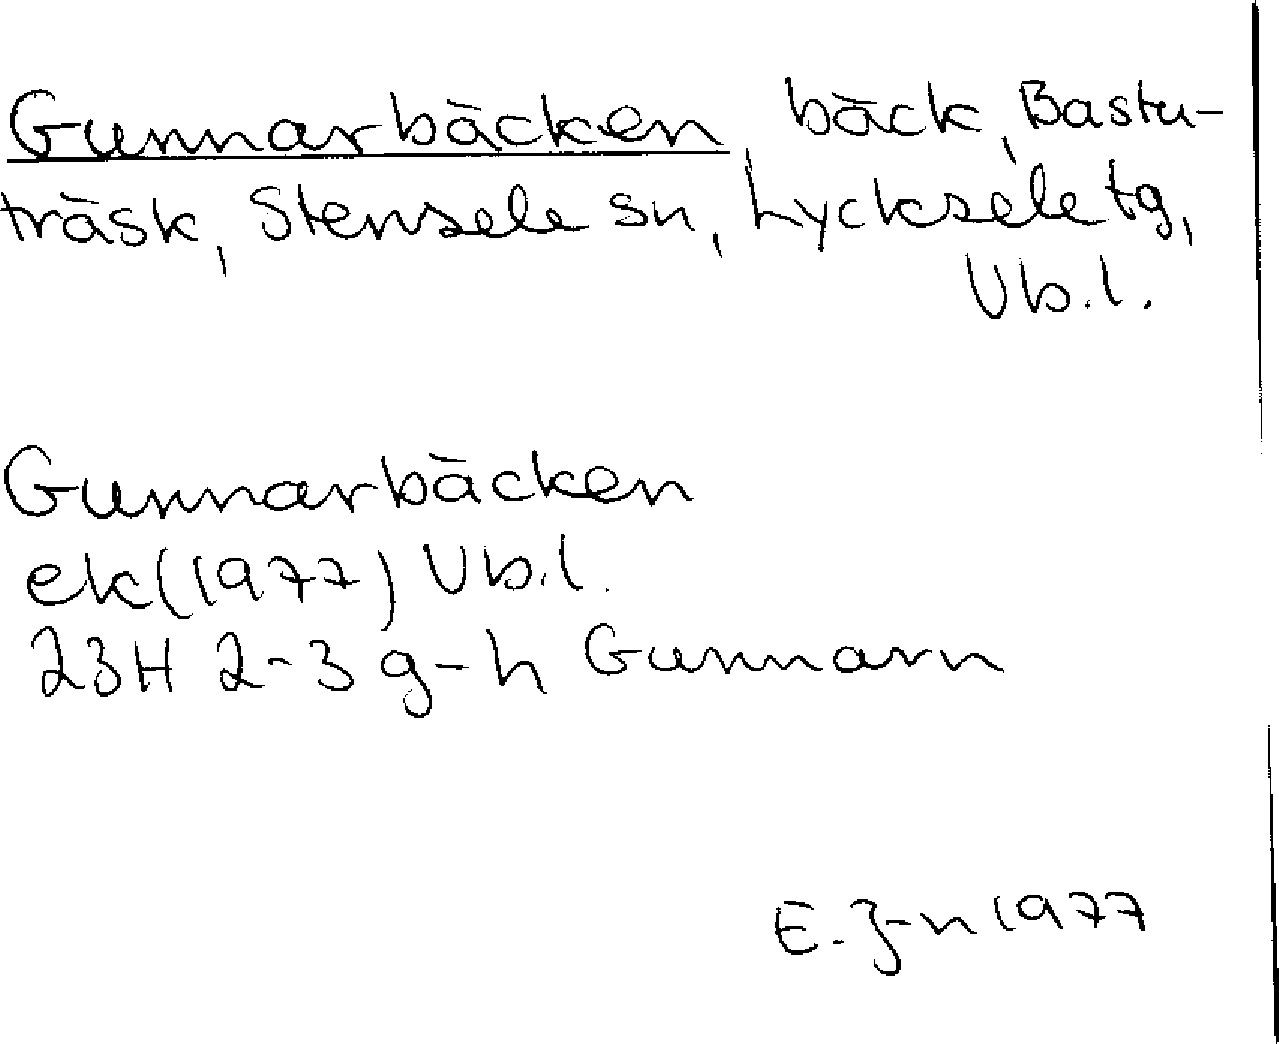 Gunnarbäcken bäck, Bastu-
träsk, Stensele sn, Lycksele tg,
Vb.l.
Gunnarbäcken
ek(1977) Vb.l.
23H 2-3 g-h Gunnarn
E. J-n 1977